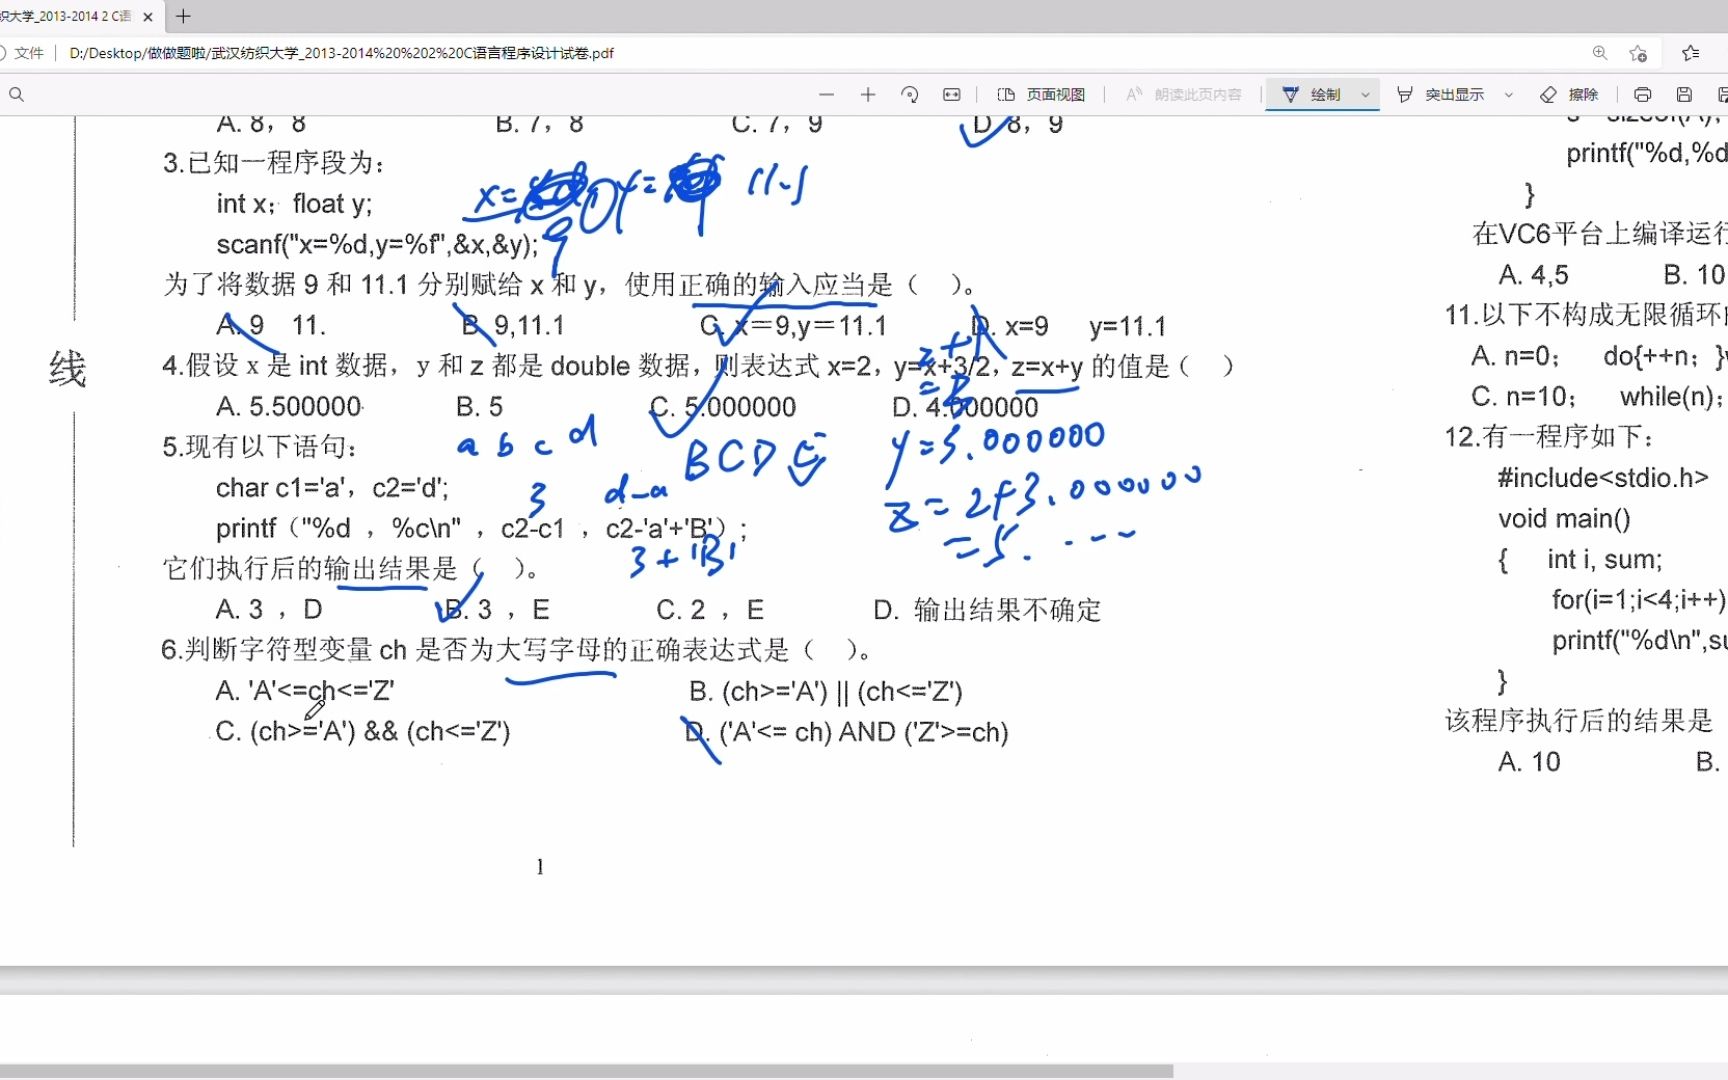 织大学_2013-2014 2 C语
文件 D:/Desktop/做做题啦/武汉纺织大学_2013-2014%20%202%20C语言程序设计试卷.pdf
页面视图 朗读此页内容 绘制 突出显示 擦除
A. 8，8 B. 7，8 C. 7，9 D 8，9
3.已知一程序段为：
int x；float y;
scanf("x=%d,y=%f",&x,&y);
x= , y= 11.1
9
为了将数据 9 和 11.1 分别赋给 x 和 y，使用正确的输入应当是（ ）。
A. 9 11. B 9,11.1 C. x＝9,y＝11.1 D. x=9 y=11.1
4.假设 x 是 int 数据，y 和 z 都是 double 数据，则表达式 x=2，y=x+3/2，z=x+y 的值是（ ）
A. 5.500000 B. 5 C. 5.000000 D. 4.000000
y=3.000000
z=2+3.000000
=5.
5.现有以下语句：
a b c d
B C D E
char c1='a'，c2='d';
3 d-a
printf（"%d ，%c\n" ，c2-c1 ，c2-'a'+'B'）;
3+'B'
它们执行后的输出结果是（ ）。
A. 3 ，D B. 3 ，E C. 2 ，E D. 输出结果不确定
6.判断字符型变量 ch 是否为大写字母的正确表达式是（ ）。
A. 'A'<=ch<='Z' B. (ch>='A') || (ch<='Z')
C. (ch>='A') && (ch<='Z') D. ('A'<= ch) AND ('Z'>=ch)
1
线
printf("%d,%d
}
在VC6平台上编译运行
A. 4,5 B. 10
11.以下不构成无限循环
A. n=0； do{++n；}
C. n=10； while(n)；
12.有一程序如下：
#include<stdio.h>
void main()
{ int i, sum;
for(i=1;i<4;i++)
printf("%d\n",su
}
该程序执行后的结果是
A. 10 B.